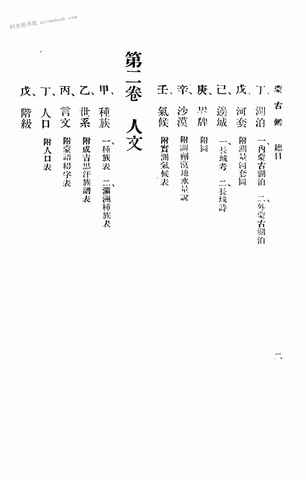 蒙古鑑 總目
丁、湖泊 一內蒙古湖泊 二外蒙古湖泊
戊、河套 附測量河套圖
己、邊城 一長城考 二長城詩
庚、界牌 附圖
辛、沙漠 附調劑漠地水量說
壬、氣候 附實測氣候表
第二卷 人文
甲、種族 一種族表 二滿洲種族表
乙、世系 附成吉思汗族譜表
丙、言文 附蒙語婦字表
丁、人口 附人口表
戊、階級
二